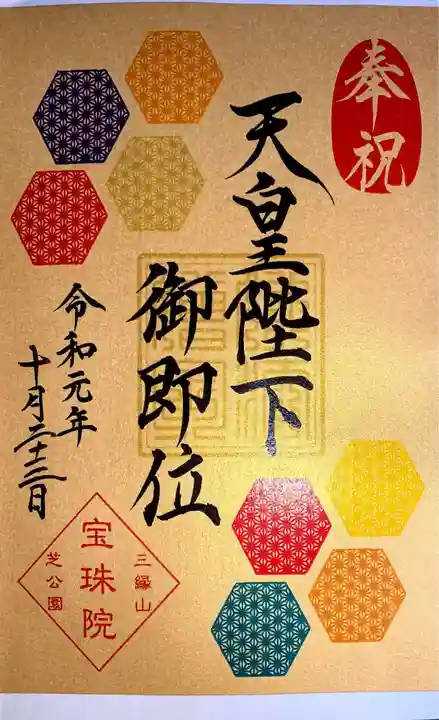 奉祝
天皇陛下
御即位
令和元年
十月二十二日
三縁山
宝珠院
芝公園